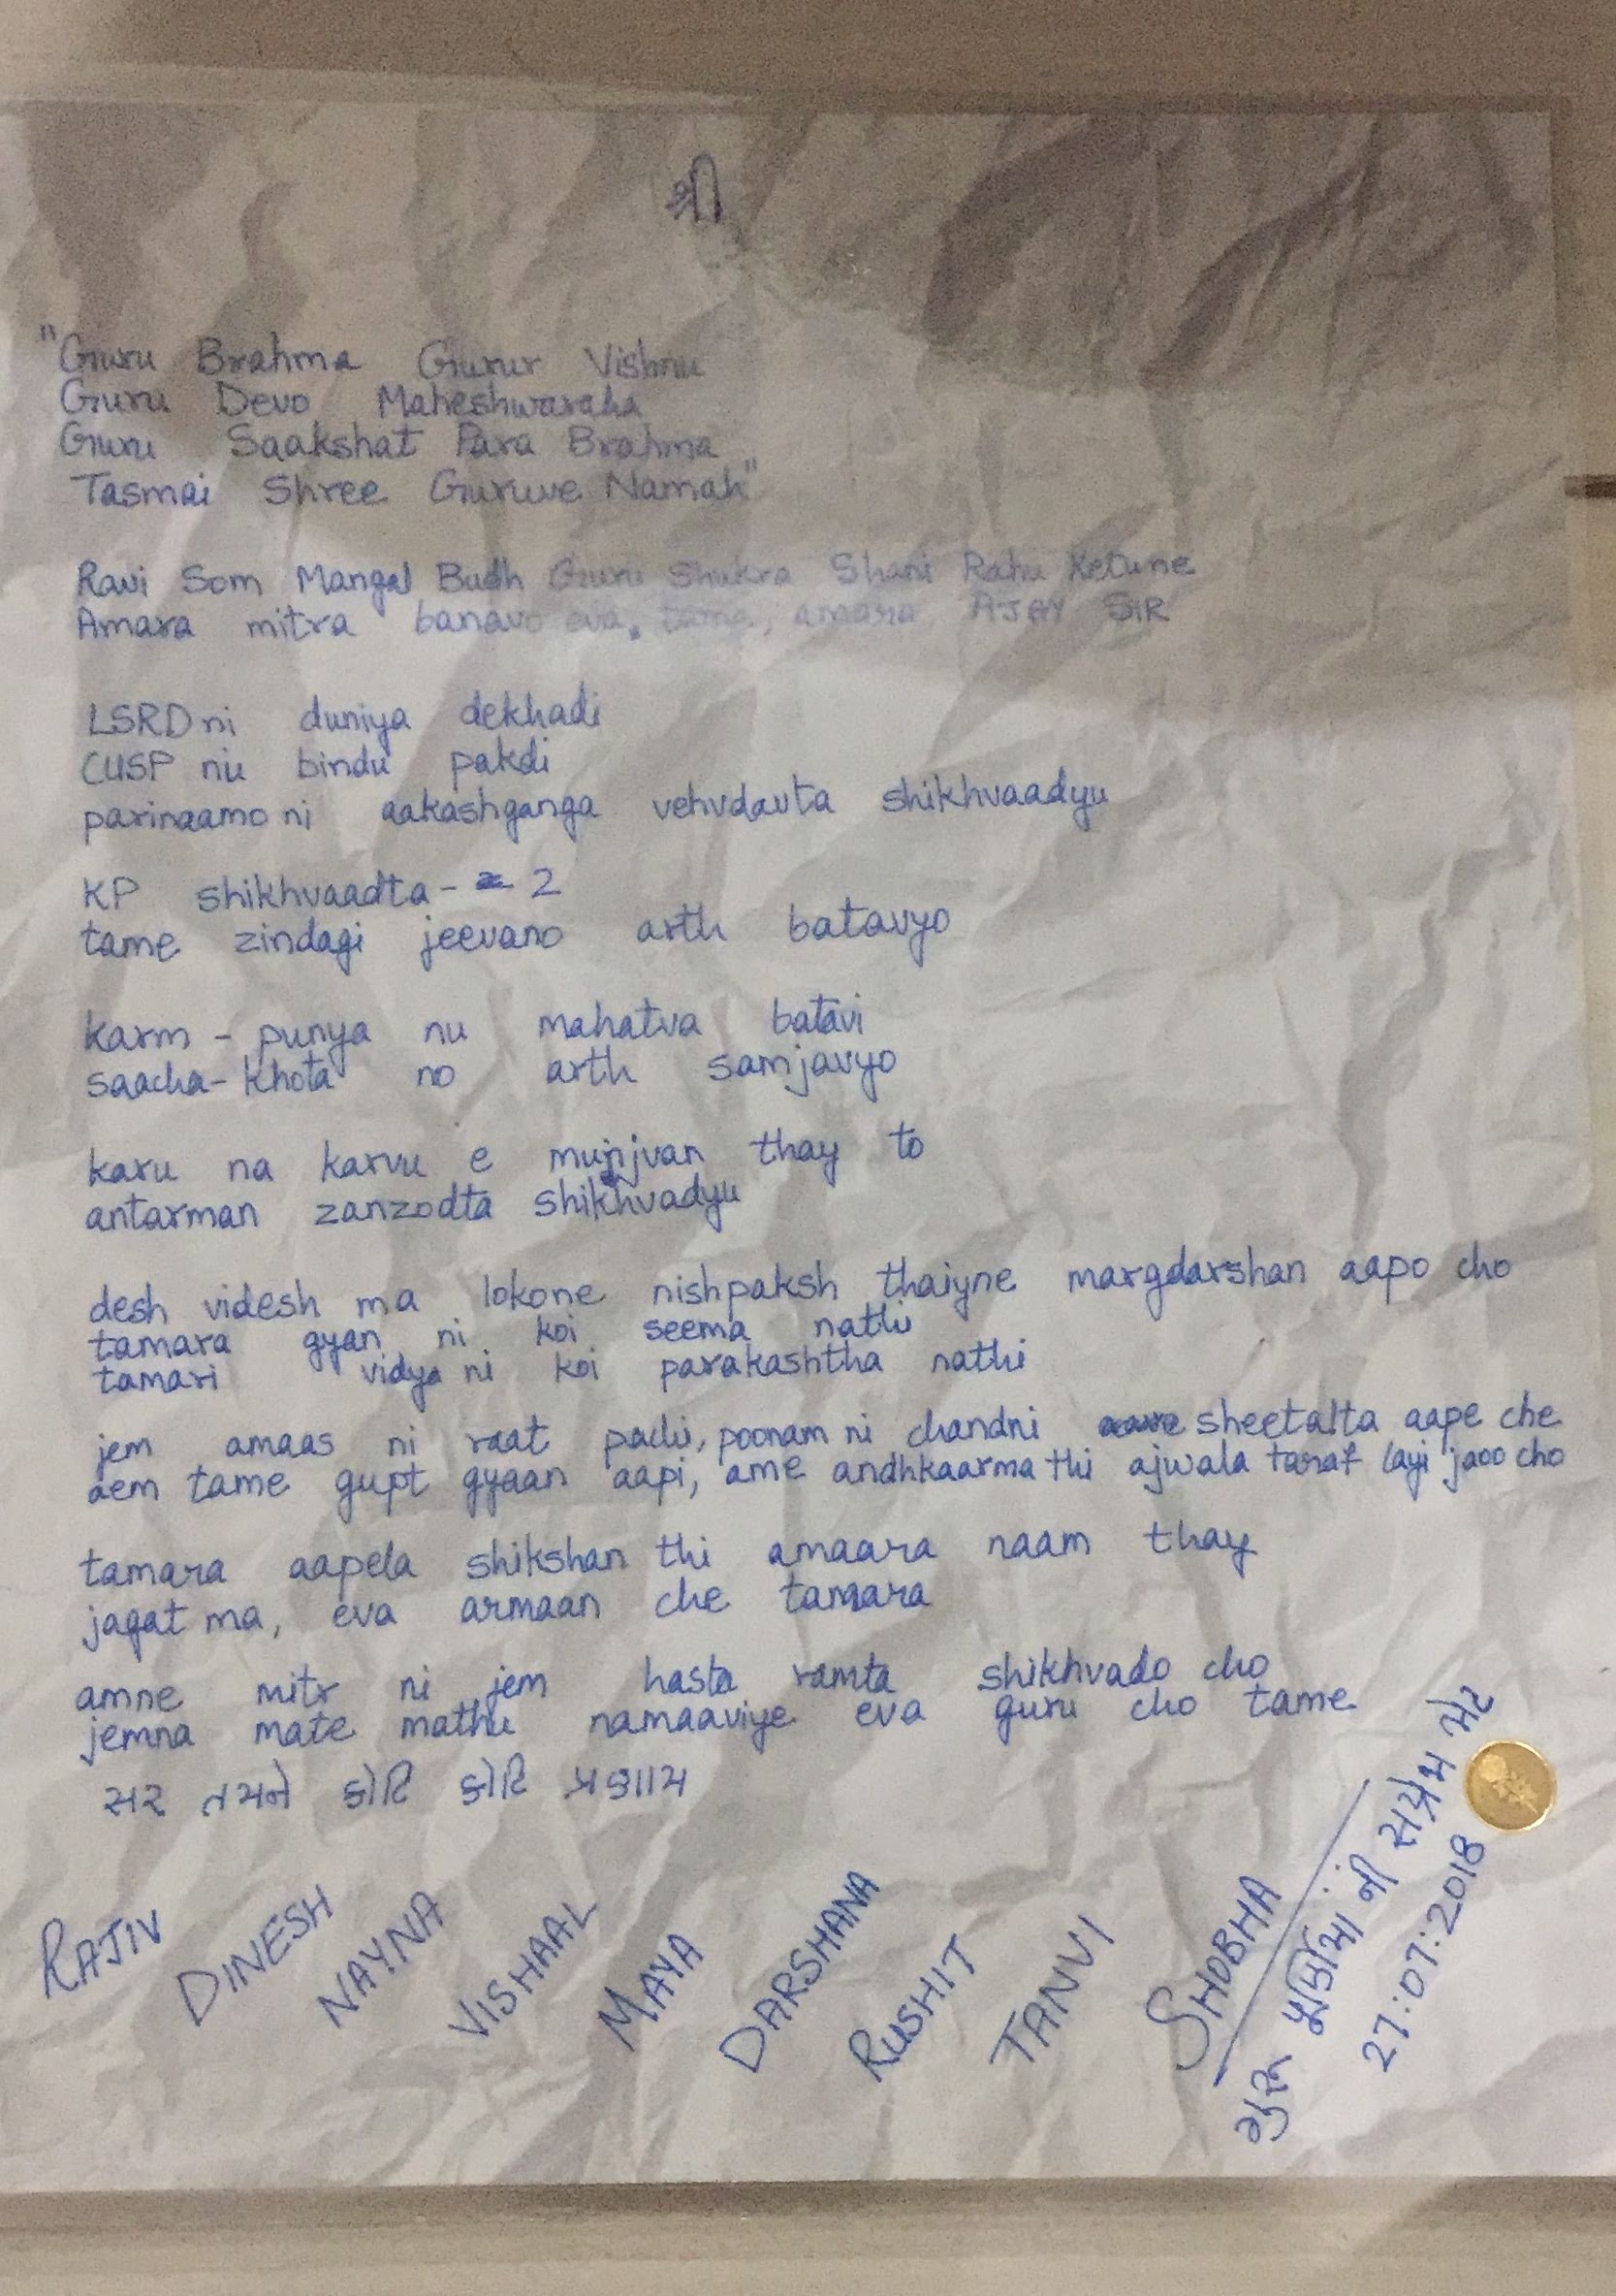 श्री
"Guru Brahma Gurur Vishnu
Guru Devo Maheshwaraha
Guru Saakshat Para Brahma
Tasmai Shree Guruve Namah"
Ravi Som Mangal Budh Guru Shukra Shani Rahu Ketune
Amara mitra banavo eva, tame, amara AJAY SIR
LSRD ni duniya dekhadi
CUSP nu bindu pakdi
parinaamo ni aakashganga vehvdavta shikhvaadyu
KP shikhvaadta - 2
tame zindagi jeevano arth batavyo
karm - punya nu mahatva batavi
saacha - khota no arth samjavyo
karu na karvu e munjvan thay to
antarman zanzodta shikhvadyu
desh videsh ma lokone nishpaksh thaiyne margdarshan aapo cho
tamara gyan ni koi seema nathi
tamari vidya ni koi parakashtha nathi
jem amaas ni raat pachi, poonam ni chandni sheetalta aape che
aem tame gupt gyaan aapi, ame andhkaarma thi ajwala taraf layi jaoo cho
tamara aapela shikshan thi amaara naam thay
jagat ma, eva armaan che tamara
amne mitr ni jem hasta ramta shikhvado cho
jemna mate mathu namaaviye eva guru cho tame
સર તમને કોટિ કોટિ પ્રણામ
RAJIV
DINESH
NAYNA
VISHAAL
MAYA
DARSHANA
RUSHIT
TANVI
SHOBHA
ગુરુ પૂર્ણિમા ની સપ્રેમ ભેટ
27:07:2018